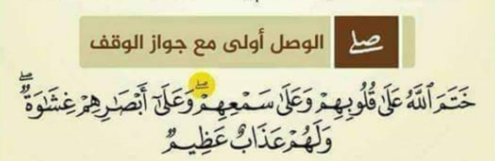 صلى الوصل أولى مع جواز الوقف
خَتَمَ اللَّهُ عَلَىٰ قُلُوبِهِمْ وَعَلَىٰ سَمْعِهِمْ ۖ وَعَلَىٰ أَبْصَارِهِمْ غِشَاوَةٌ ۖ
وَلَهُمْ عَذَابٌ عَظِيمٌ